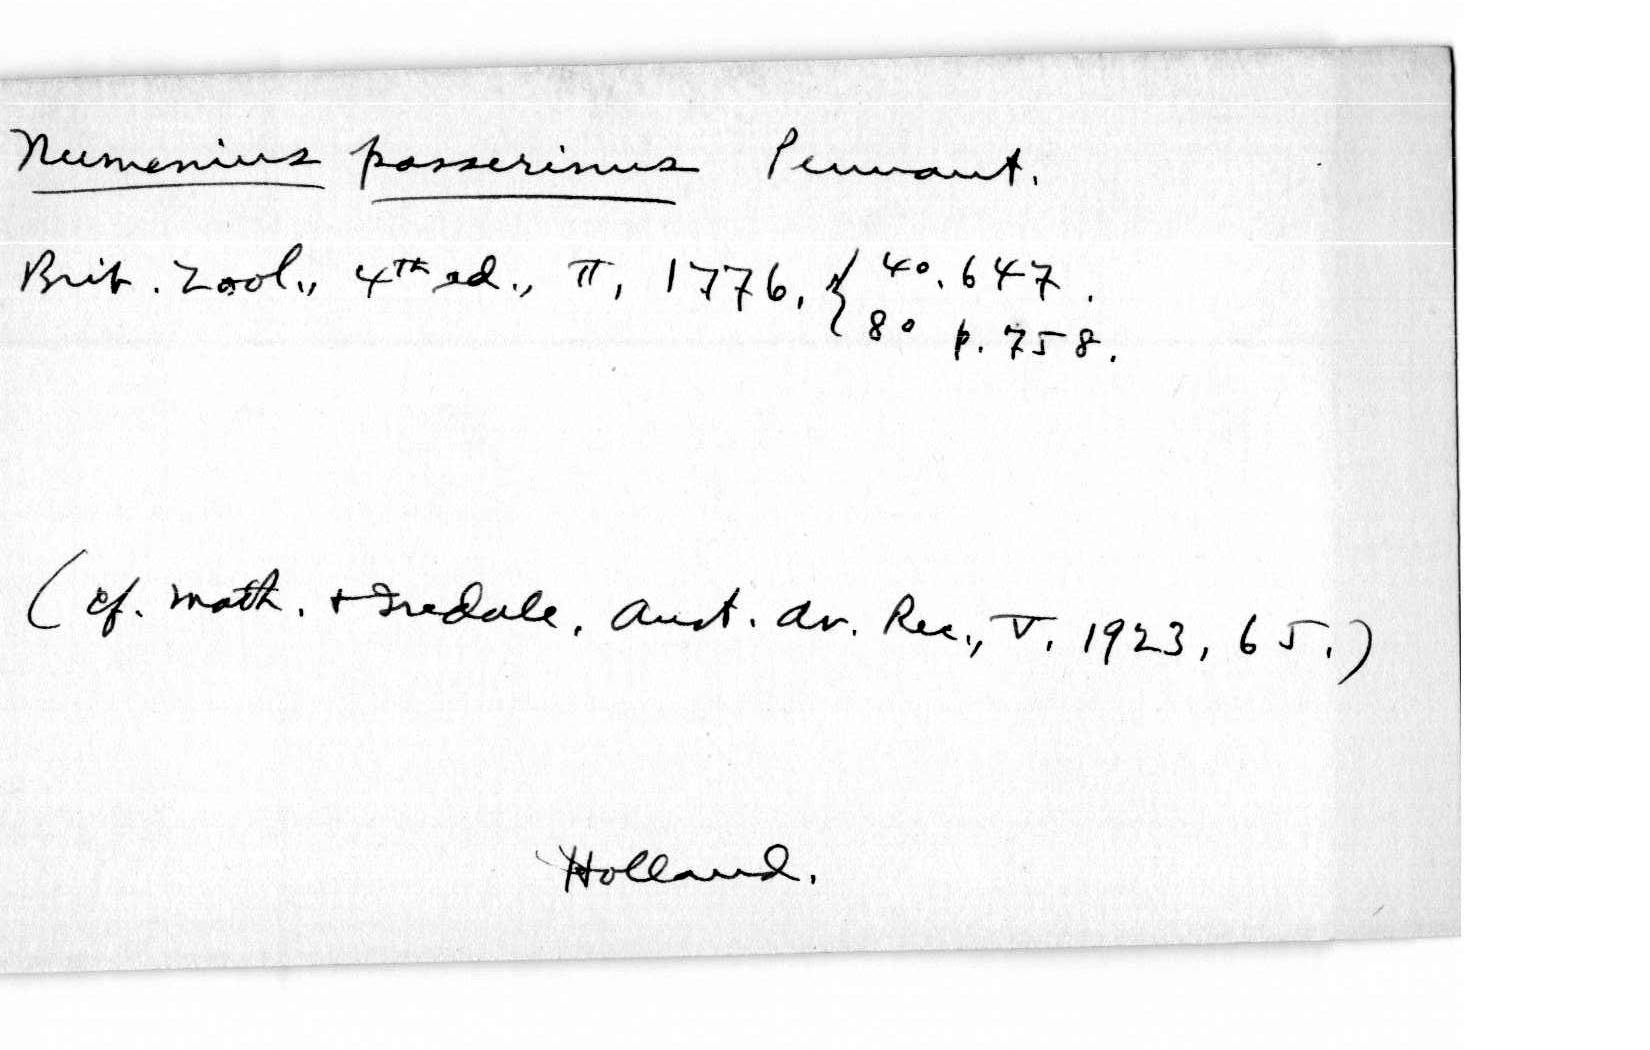 Numenius passerinus Pennant.
Brit. Zool., 4th ed., II, 1776, { 4o. 647.
8o p. 758.
(cf. Math. + Iredale, Aust. Av. Rec., V, 1923, 65.)
Holland.